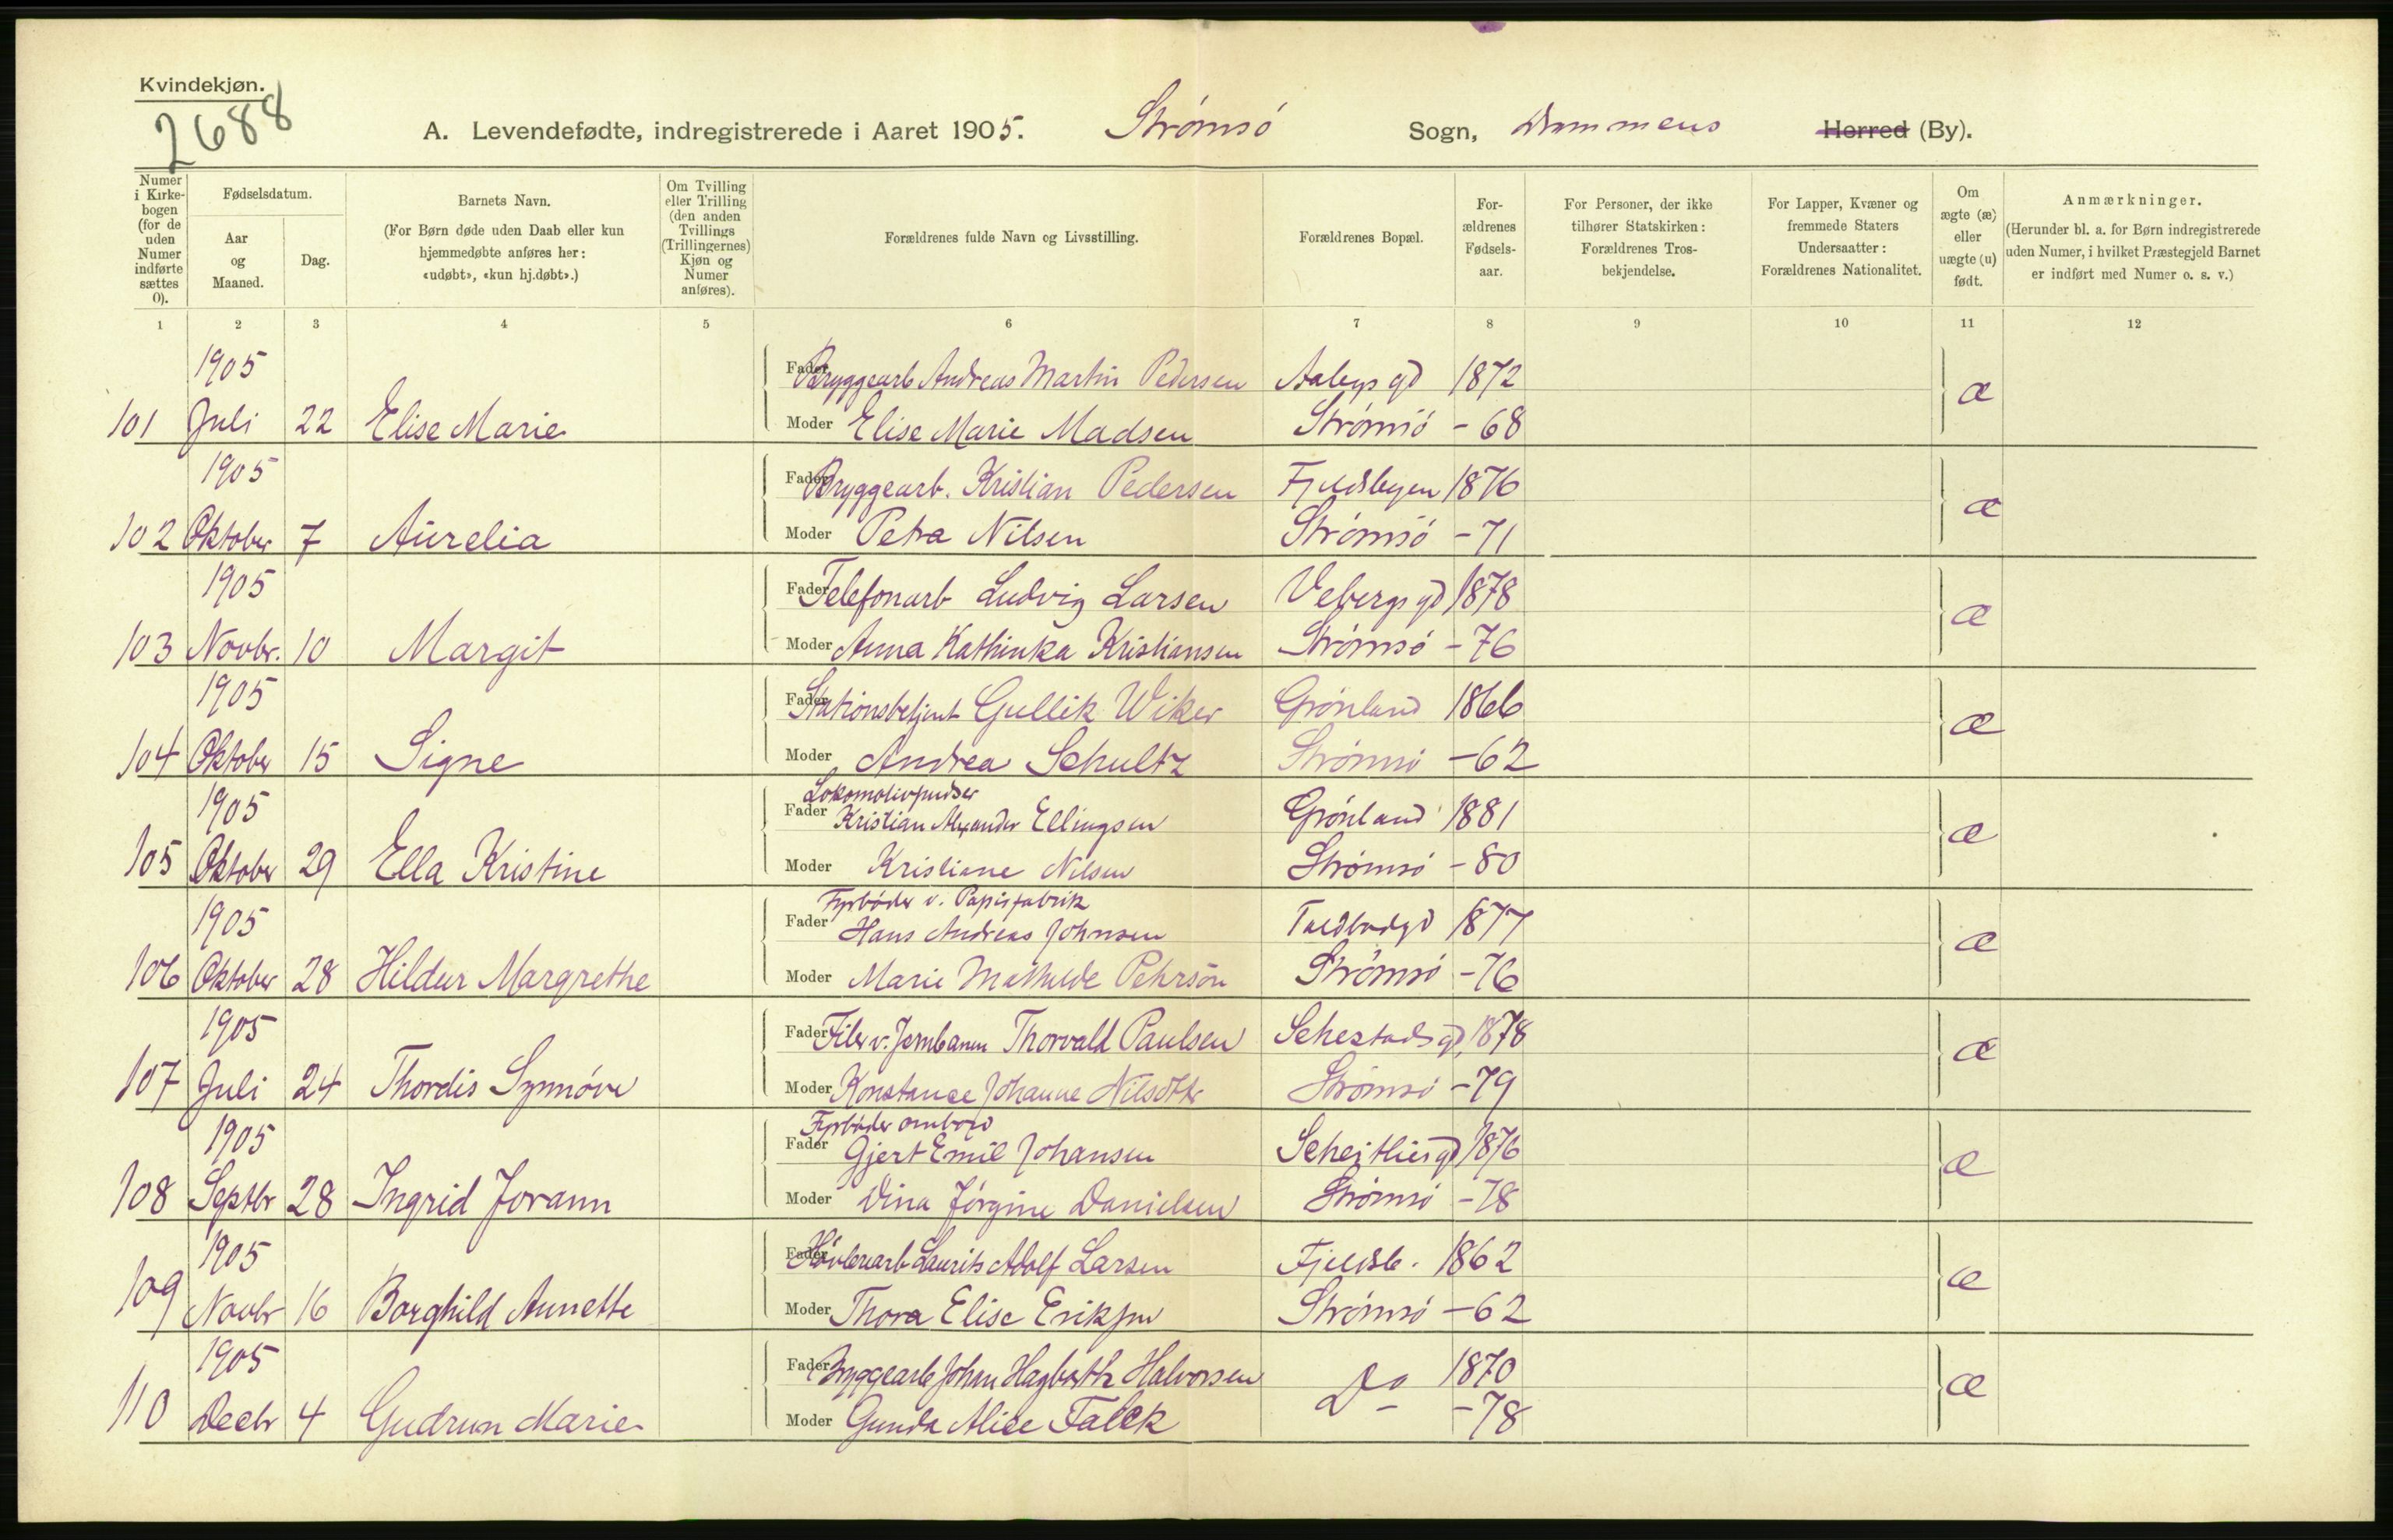 Kvindekjøn.
2688
A. Levendefødte, indregistrerede i Aaret 1905. Strømsö Sogn, Drammens Herred (By).
Numer i Kirkebogen (for de uden Numer indførte sættes 0).
Fødselsdatum.
Aar og Maaned.
Dag.
Barnets Navn.
(For Børn døde uden Daab eller kun hjemmedøbte anføres her: «udøbt», «kun hj.døbt».)
Om Tvilling eller Trilling (den anden Tvillings (Trillingernes) Kjøn og Numer anføres).
Forældrenes fulde Navn og Livsstilling.
Forældrenes Bopæl.
Forældrenes Fødselsaar.
For Personer, der ikke tilhører Statskirken: Forældrenes Trosbekjendelse.
For Lapper, Kvæner og fremmede Staters Undersaatter: Forældrenes Nationalitet.
Om ægte (æ) eller uægte (u) født.
Anmærkninger.
(Herunder bl. a. for Børn indregistrerede uden Numer, i hvilket Præstegjeld Barnet er indført med Numer o. s. v.)
1 2 3 4 5 6 7 8 9 10 11 12
1905 Fader Bryggearb Andreas Martin Pedersen Aabys gd 1872 æ
101 Juli 22 Elise Marie Moder Elise Marie Madsen Strömsö - 68
1905 Fader Bryggearb. Kristian Pedersen Fjeldbyen 1876 æ
102 Oktober 7 Aurelia Moder Petra Nilsen Strömsö - 71
1905 Fader Telefonarb Ludvig Larsen Vebergs gd 1878 æ
103 Novbr. 10 Margit Moder Anna Kathinka Kristiansen Strömsö - 76
1905 Fader Stationsbetjent Gullik Wiker Grönland 1866 æ
104 Oktober 15 Signe Moder Andrea Schultz Strömsö - 62
1905 Lokomotivpudser
Fader Kristian Alexander Ellingsen Grönland 1881 æ
105 Oktober 29 Ella Kristine Moder Kristiane Nilsen Strömsö - 80
1905 Fyrböder v. Papirfabrik
Fader Hans Andreas Johnsen Toldbodgd 1877 æ
106 Oktober 28 Hildur Margrethe Moder Marie Mathilde Pehrsön Strömsö - 76
1905 Fader Filer v. Jernbanen Thorvald Paulsen Sehestads gd, 1878 æ
107 Juli 24 Thordis Synnöve Moder Konstanse Johanne Nilsdttr Strömsö - 79
1905 Fyrböder ombord
Fader Gjert Emil Johansen Scheitliesgd 1876 æ
108 Septbr 28 Ingrid Jorann Moder Dina Jörgine Danielsen Strömsö - 78
1905 Fader Hövleriarb Laurits Adolf Larsen Fjeldsb. 1862 æ
109 Novbr 16 Borghild Annette Moder Thora Elise Eriksen Strömsö - 62
1905 Fader Bryggearb Johan Hagbarth Halvorsen Do 1870 æ
110 Decbr 4 Gudrun Marie Moder Gunda Alice Falck - 78